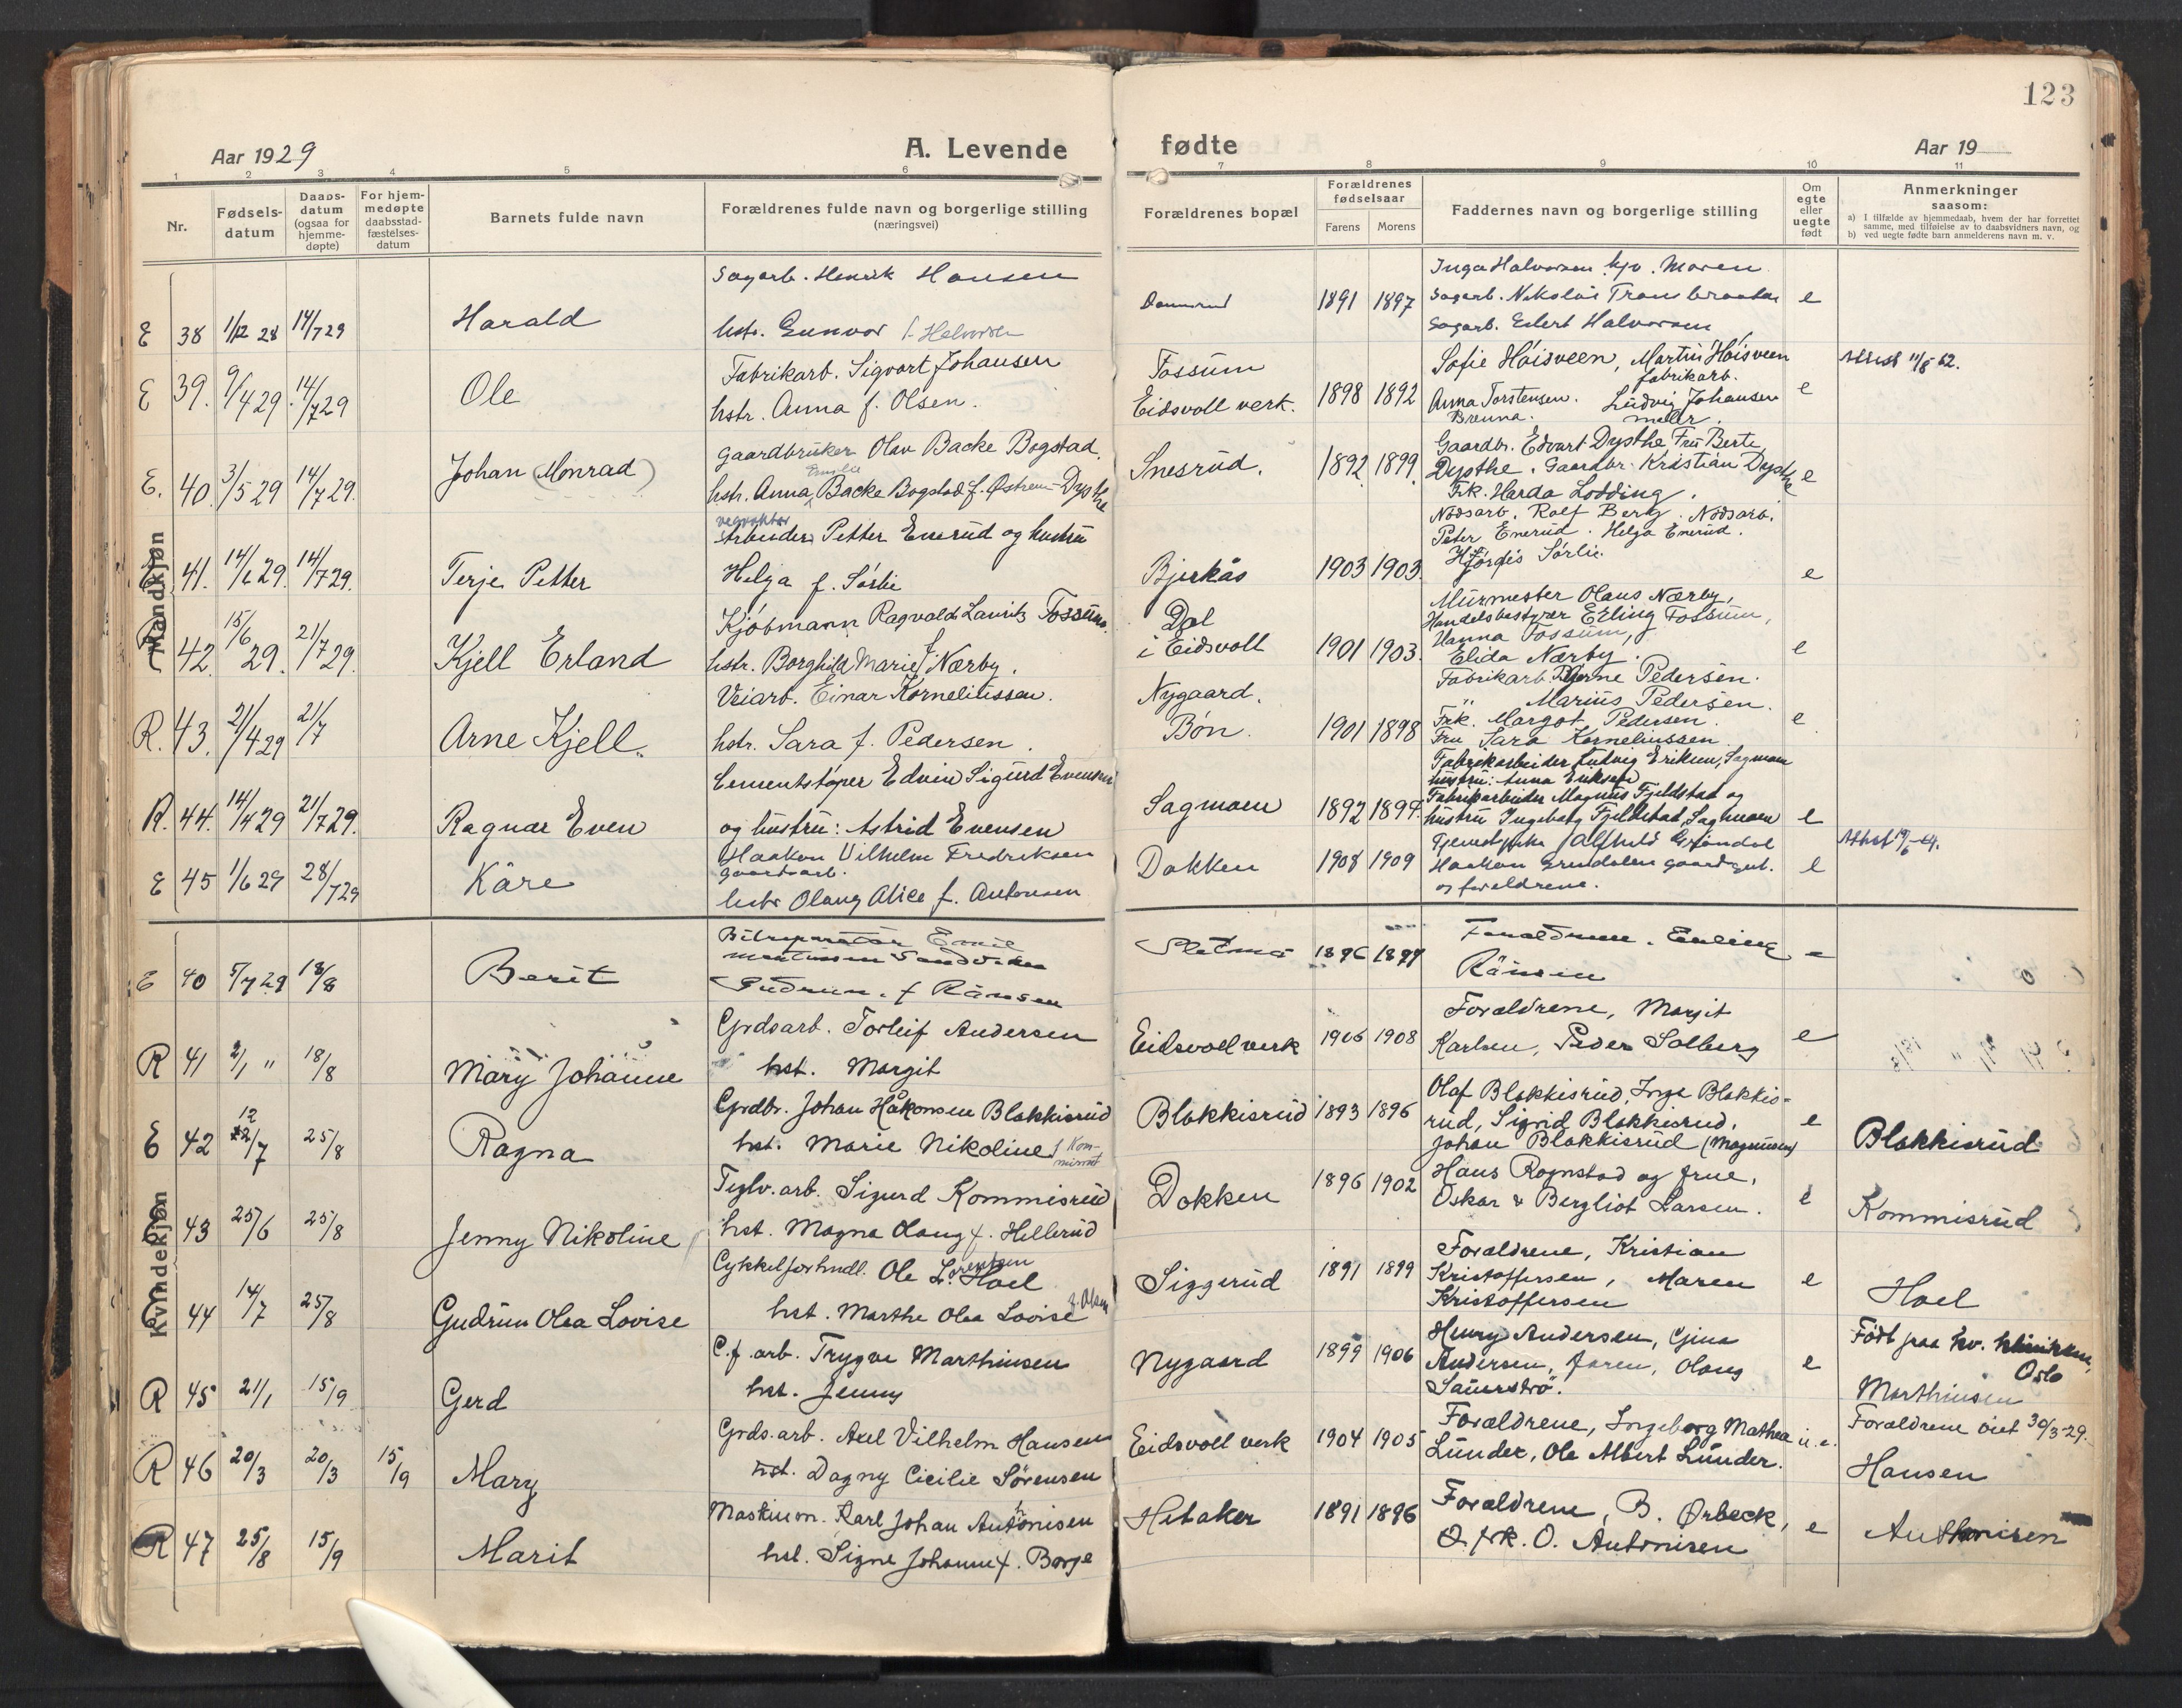 123
Aar 1929
A. Levende fødte
Aar 19
1 2 3 4 5 6 7 8 9 10 11
Nr.
Fødsels-datum
Daabs-datum (ogsaa for hjemme-døpte)
For hjem-medøpte daabsstad-fæstelses-datum
Barnets fulde navn
Forældrenes fulde navn og borgerlige stilling (næringsvei)
Forældrenes bopæl
Forældrenes fødselsaar
Farens Morens
Faddernes navn og borgerlige stilling
Om egte eller uegte født
Anmerkninger saasom:
a) I tilfælde av hjemmedaab, hvem der har forrettet samme, med tilføielse av to daabsvidners navn, og
b) ved uegte fødte barn anmelderens navn m. v.
Mandkjøn
E 38 1/12 28 14/7 29 Harald
Sagarb. Henrik Hansen
hstr. Gunvor f. Halvorsen
1891 1897
Inga Halvorsen
Sagarb. Nikolai Tronbraaten
Sagarb. Eilert Halvorsen
e
E 39. 9/4 29. 14/7 29 Ole
Fabrikarb. Sigvart Johansen
hstr. Anna f. Olsen.
Fossum
Eidsvoll verk.
1898 1892
Sofie Höisveen, Martin Höisveen
fabrikarb.
Anna Torstensen. Ludvig Johansen
Brenna. møller.
e
Attest 11/8 62.
E. 40. 3/5 29 14/7 29. Johan (Monrad)
Gaardbruker Olav Backe Bogstad.
hstr. Anna Emilie Backe Bogstad f. Østrem-Dysthe
Snesrud.
1892 1899
Gaardbr. Edvart Dysthe Fru Berte
Dysthe. Gaardbr. Kristian Dysthe
Frk. Harda Lodding.
e
E 41. 14/6 29. 14/7 29. Terje Petter
vegvokter
Arbeider Petter Enerud og hustru
Helga f. Sørlie
Bjerkås
1903 1903.
Nødsarb. Rolf Berg. Nødsarb.
Peter Enerud. Helga Enerud.
Hjördis Sörlie.
e
42. 15/6 29. 21/7 29. Kjell Erland
Kjöbmann Ragvald Lauritz Fossum.
hstr. Borghild Marie f. Nærby.
Dal
i Eidsvoll
1901 1903.
Murmester Olaus Nærby,
Handelsbestyrer Erling Fossum,
Hanna Fossum,
Elida Nærby.
e
R. 43. 21/4 29 21/7 Arne Kjell.
Veiarb. Einar Korneliussen.
hstr. Sara f. Pedersen.
Nygaard.
Bøn.
1901 1898
Fabrikarb. Bjarne Pedersen.
" Marius Pedersen.
Frk. Margot Pedersen.
Fru Sara Korneliussen
e
R. 44. 14/4 29 21/7 29. Ragnar Even
Cementstöper Edvin Sigurd Evensen
og hustru: Astrid Evensen
Sagmoen
1892 1894.
Fabrikarbeider Ludvig Eriksen, Sagmoen
hustru: Anna Eriksen
Fabrikarbeider Magnus Fjeldstad og
hustru Ingeborg Fjeldstad, Sagmoen
e
E 45 1/6 29 28/7 29 Kåre
Haakon Vilhelm Fredriksen
gaardsarb.
hstr Olaug Alice f. Antonsen
Dokken
1908 1909
Tjenestpike Alfhild Gröndal
Haakon Grundalen gaardgut.
og foreldrene.
e
Attest 19/6-64.
Kvindekjøn
E 40 5/7 29 18/8 Berit
Bilreparatör Emil
Gudrun. f Rånsen
Sletmo
1896 1899
Foraldrene. Erling
Rånsen
e
R 41 2/1 " 18/8 Mary Johanne
Grdsarb. Torleif Andersen
hst. Margit
Eidsvoll verk
1906 1908
Foraldrene, Margit
Karlsen, Peder Solberg
e
E 42 12/7 25/8 Ragna
Grdbr. Johan Håkonsen Blakkisrud
hst. Marie Nikoline f Kommisrud
Blakkisrud
1893 1896
Olaf Blakkisrud, Inga Blakkis-
rud, Sigrid Blakkisrud.
Johan Blakkisrud (Magnussen)
e
Blakkisrud
43 25/6 25/8 Jenny Nikoline
Teglv. arb. Sigurd Kommisrud
hst. Magna Olaug f. Hellerud
Dokken
1896 1902
Hans Rognstad og frue,
Oskar & Bergliot Larsen.
e
Kommisrud
44 14/7 25/8 Gudrun Olea Lovise
Cykkelforhndl. Ole Lorentsen Hoel
hst. Marthe Olea Lovise f. Olsen
Siggerud
1891 1899
Foraldrene, Kristian
Kristoffersen, Maren
Kristoffersen
e
Hoel
R 45 21/1 15/9 Gerd
C.f. arb. Trygve Marthinsen
hst. Jenny
Nygaard
1899 1906
Henry Andersen, Gina
Andersen, faren, Olaug
e
Født paa kv. klinikken,
Oslo
Marthinsen
R 46 20/3 20/3 15/9 Mary
Grds.arb. Axel Vilhelm Hansen
hst. Dagny Cicilie Sørensen
Eidsvoll verk
1904 1905
Foraldrene, Ingeborg Mathea
Lunder, Ole Albert Lunder.
u. e.
Foraldrene viet 30/3-29.
Hansen
R 47 25/8 15/9 Marit
Maskinm. Karl Johan Anthonisen
hst. Signe Johanne f. Borge
Hetaker
1891 1896
Foraldrene, B. Ørbeck,
O. Antonisen
e
Anthonisen